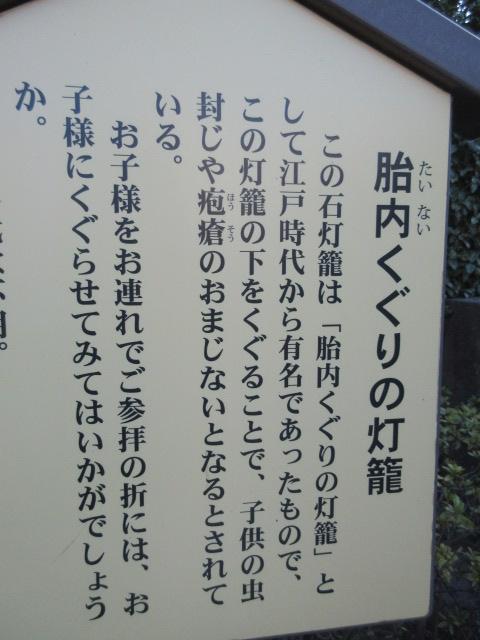 胎内くぐりの灯籠
たい ない
この石灯籠は「胎内くぐりの灯籠」と
して江戸時代から有名であったもので、
この灯籠の下をくぐることで、子供の虫
封じや疱瘡のおまじないとなるとされて
ほう そう
いる。
お子様をお連れでご参拝の折には、お
子様にくぐらせてみてはいかがでしょう
か。